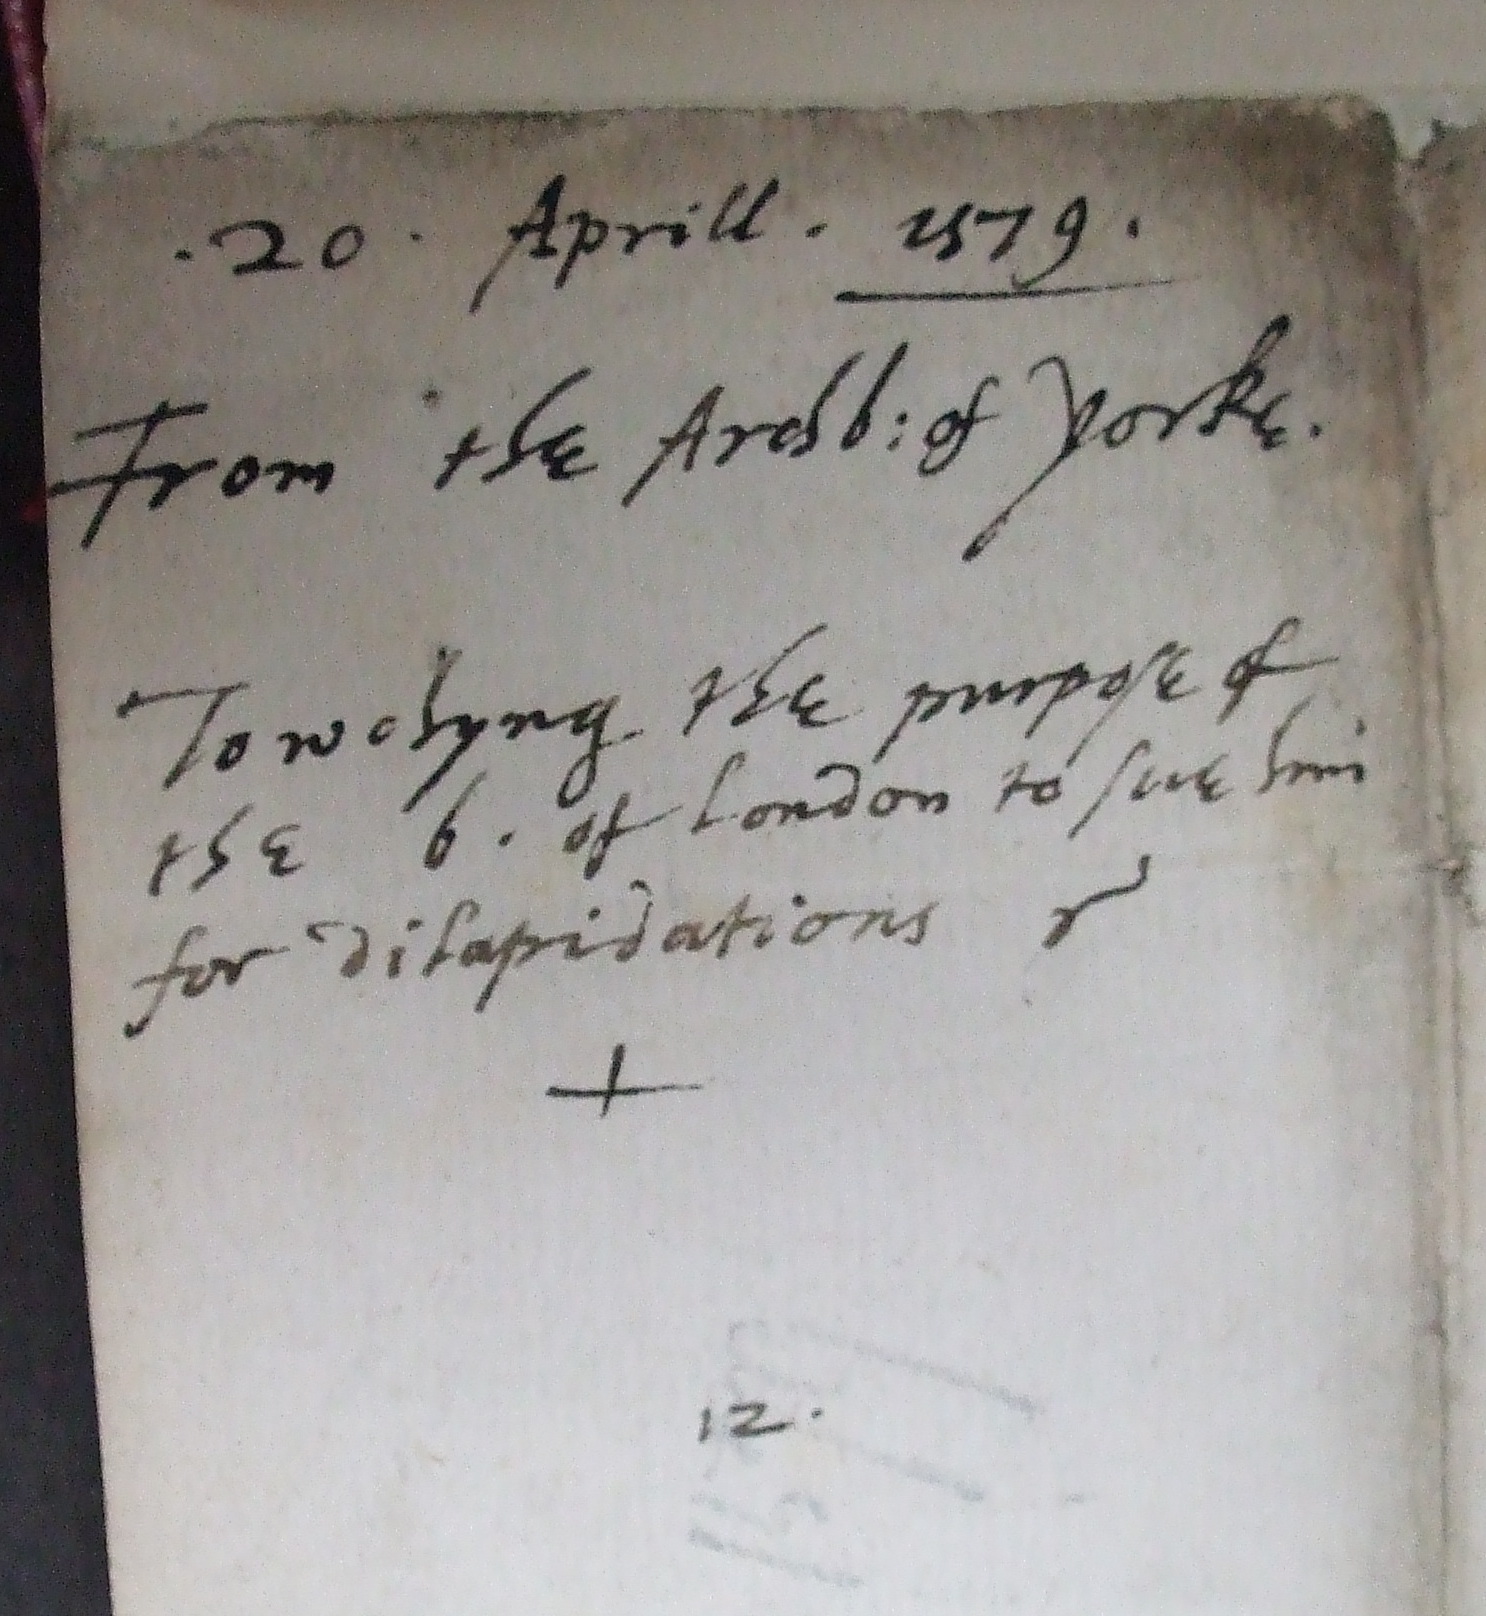 .20. Aprill. 1579.
From the Archb: of Yorke.
Towchyng the purpose of
the b. of London to sue him
for dilapidations
+
12.